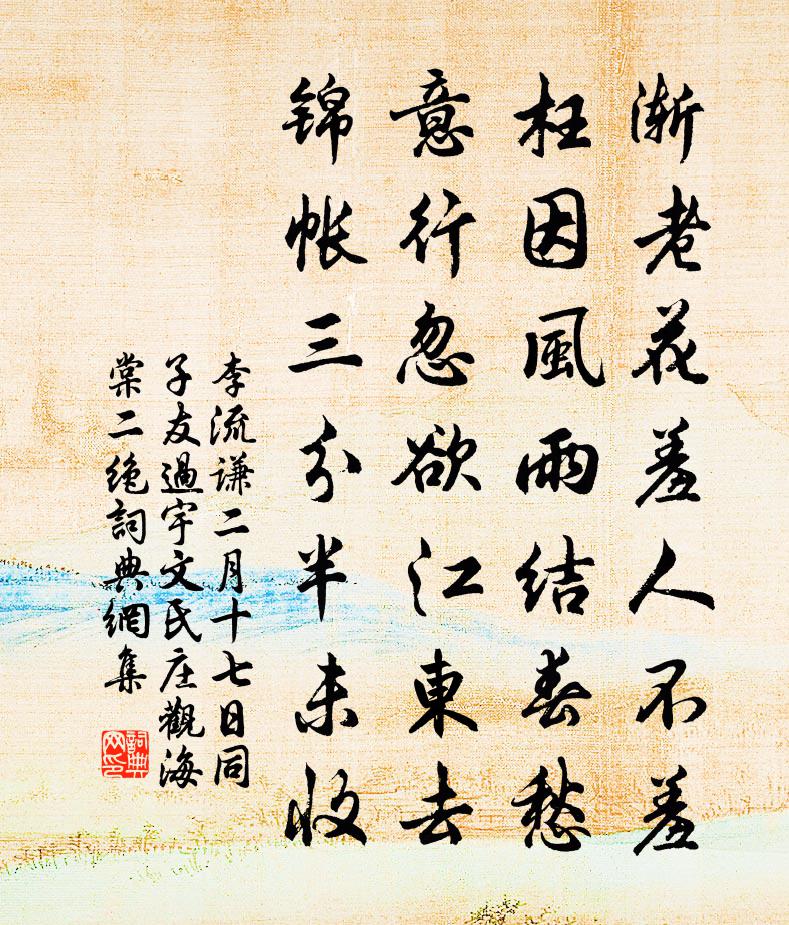 渐老花羞人不羞
枉因風雨结春愁
意行忽欲江東去
锦帐三分半未收
李流谦二月十七日同
子友過宇文氏庄觀海
棠二绝詞典網集
詞典网印